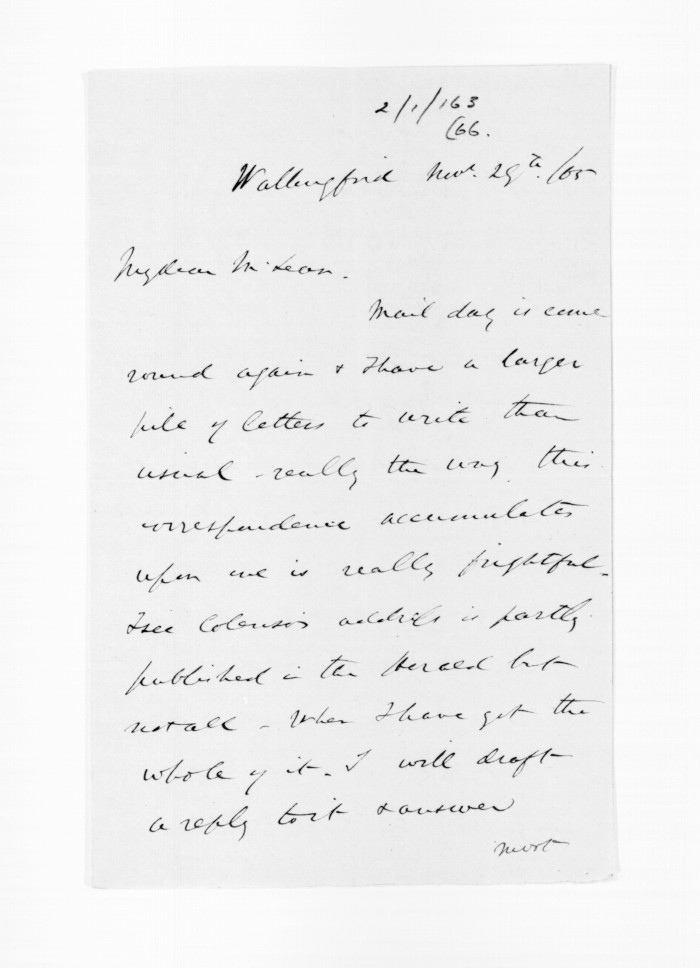 2/1/163
(66.
Wallingford Novr. 29th. /65
My dear McLean.
Mail day is come
round again & I have a larger
pile of letters to write than
usual - really the way this
correspondence accumulates
upon me is really frightful -
I see Colenso's address is partly
published in the Herald but
not all - When I have got the
whole of it - I will draft
a reply to it & answer
most